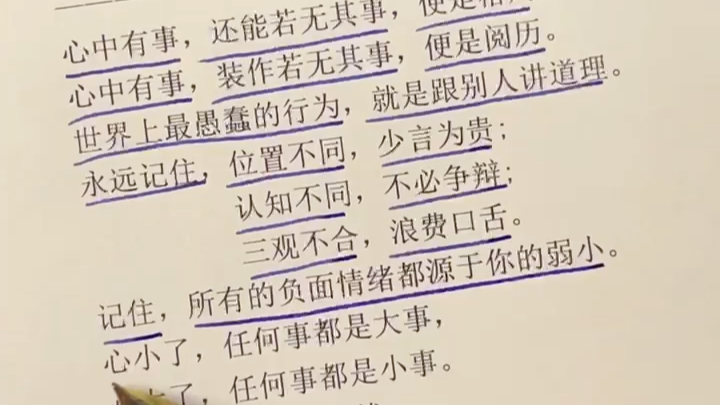 心中有事，还能若无其事，便是
心中有事，装作若无其事，便是阅历。
世界上最愚蠢的行为，就是跟别人讲道理。
永远记住，位置不同，少言为贵；
认知不同，不必争辩；
三观不合，浪费口舌。
记住，所有的负面情绪都源于你的弱小。
心小了，任何事都是大事，
了，任何事都是小事。